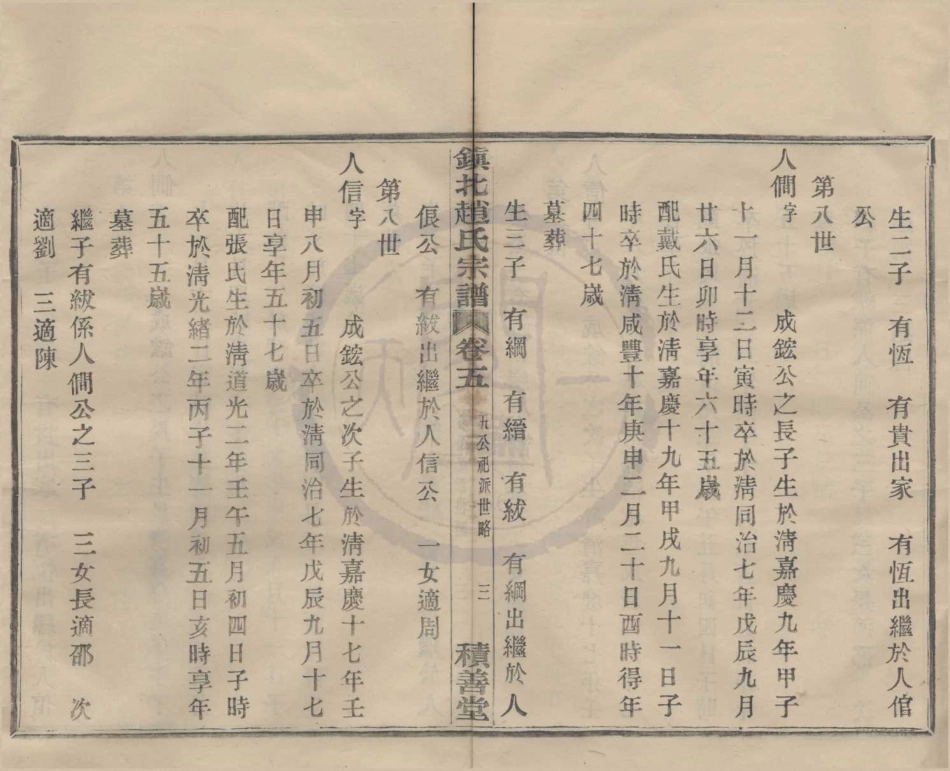 生二子　有恆　有貴出家　有恆出繼於人倌
公
第八世
人僩字　成鋐公之長子生於清嘉慶九年甲子
十一月十二日寅時卒於清同治七年戊辰九月
廿六日卯時享年六十五歲
配戴氏生於清嘉慶十九年甲戌九月十一日子
時卒於清咸豐十年庚申二月二十日酉時得年
四十七歲
墓葬
生三子　有綱　有縉　有紱　有綱出繼於人
鎭北趙氏宗譜　卷五　九公祀派世略　三　積善堂
㑪公　有紱出繼於人信公　一女適周
第八世
人信字　成鋐公之次子生於清嘉慶十七年壬
申八月初五日卒於清同治七年戊辰九月十七
日享年五十七歲
配張氏生於清道光二年壬午五月初四日子時
卒於清光緒二年丙子十一月初五日亥時享年
五十五歲
墓葬
繼子有紱係人僩公之三子　三女長適邵　次
適劉　三適陳